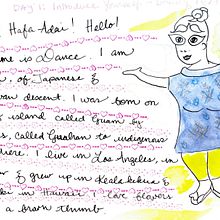 Day 11 Introduce Yourself
Hafa Adai! Hello!
me is Dance. I am
, of Japanese &
an descent. I was born on
island called Guam by
s, called Guahan to indigenous
here. I live in Los Angeles, in
& grew up in
in Hawaii. I love flowers
a brown thumb